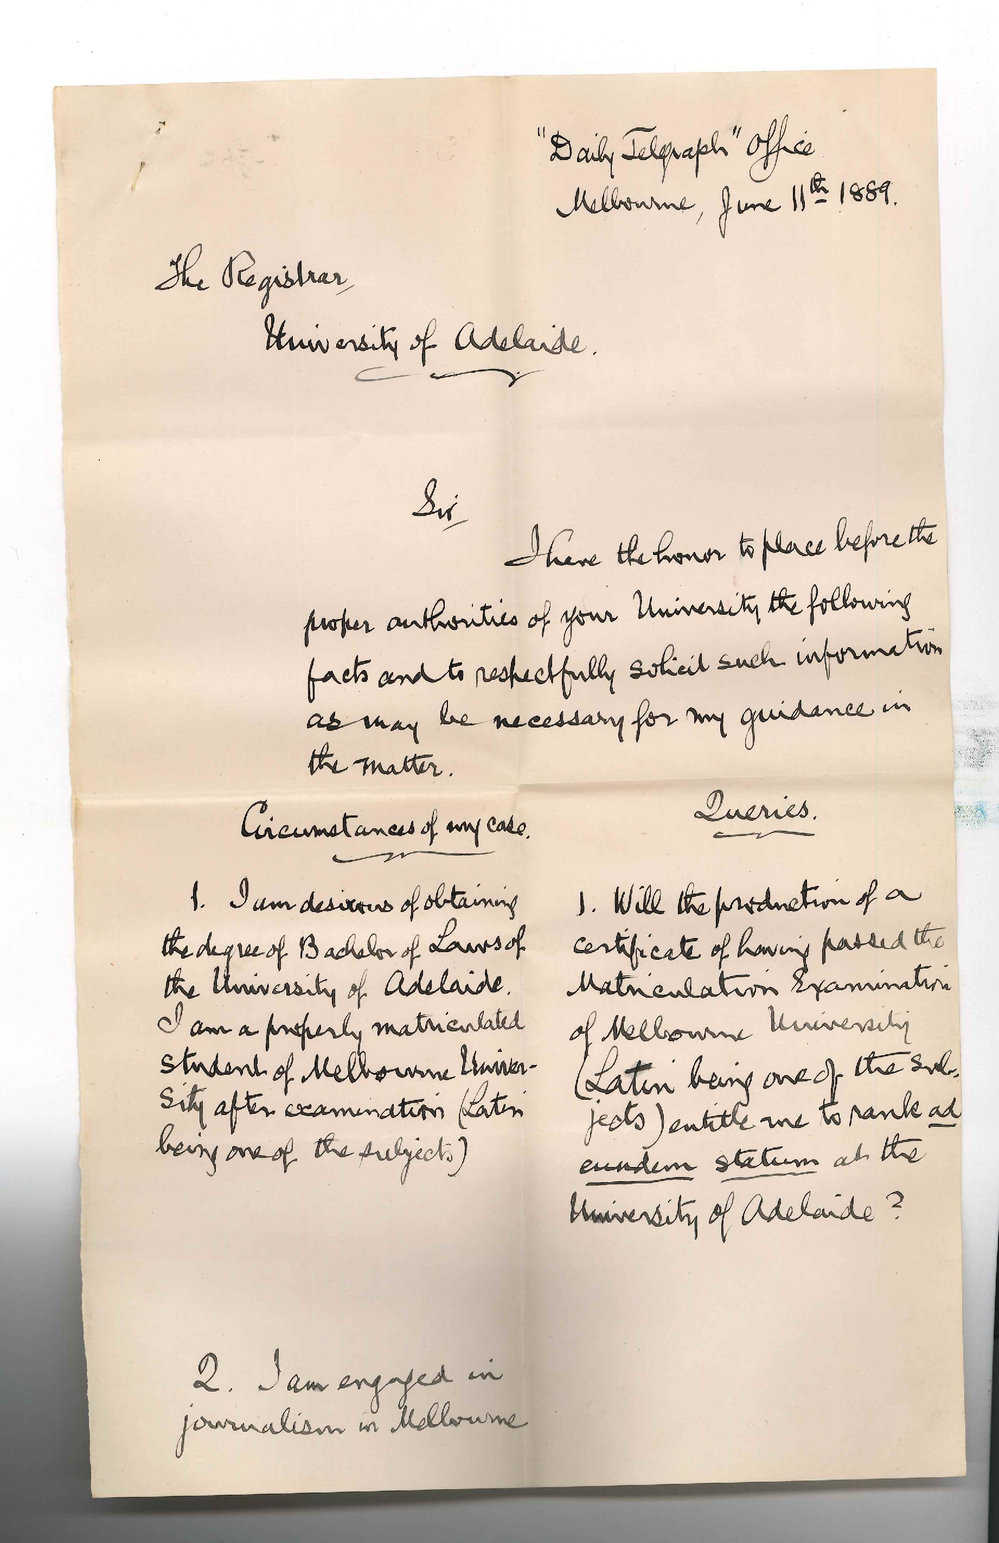 "Daily Telgraph" Office
Melbourne, June 11th 1889.
The Registrar,
University of Adelaide.
Sir,
I have the honor to place before the
proper authorities of your University the following
facts and to respectfully solicit such information
as may be necessary for my guidance in
the matter.
Circumstances of my case.
1. I am desirous of obtaining
the degree of Bachelor of Laws of
the University of Adelaide.
I am a properly matriculated
student of Melbourne Univer-
sity after examination (Latin
being one of the subjects)
2. I am engaged in
journalism in Melbourne
Queries.
1. Will the production of a
certificate of having passed the
Matriculation Examination
of Melbourne University
(Latin being one of the sub-
jects) entitle me to rank ad
eundem statum at the
University of Adelaide?